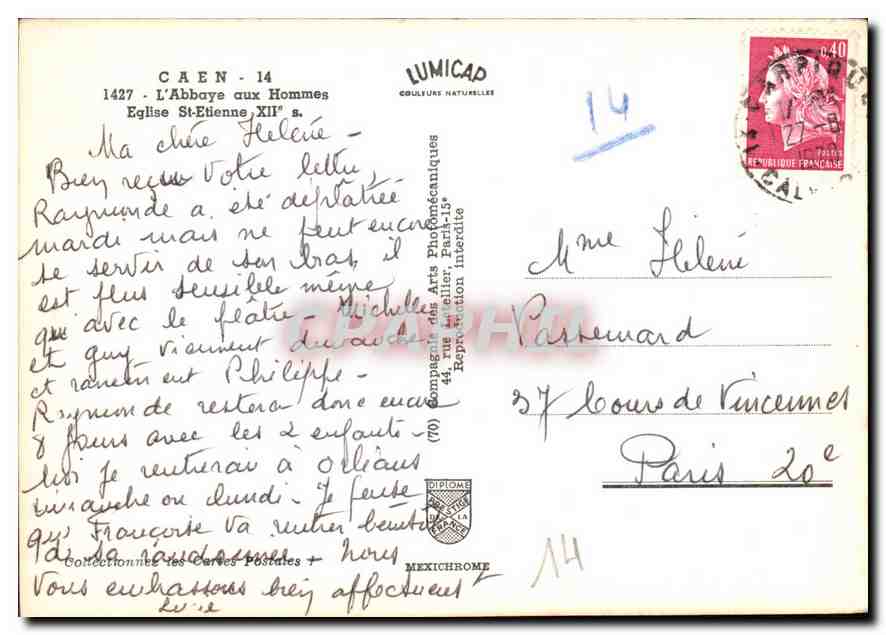 CAEN - 14
1427 - L'Abbaye aux Hommes
Eglise St-Etienne XIIe s.
LUMICAP
COULEURS NATURELLES
14
0,40
POSTES
REPUBLIQUE FRANÇAISE
CARPIQUET
27 - 8
CALVADOS
Ma chère Helène -
Bien reçu Votre lettre,
Raymonde a été déplâtrée
mardi mais ne peut encore
se servir de son bras, il
est plus sensible même
qu'avec le plâtre - Michelle
et Guy viennent dimanche
et ramènent Philippe -
Raymonde restera donc encore
8 jours avec les 2 enfants -
Moi je rentrerai à Orléans
dimanche ou lundi - Je pense
que Françoise va rentrer bientôt
de sa randonnée - Nous
Vous embrassons bien affectueust
Collectionnez les Cartes Postales
(70) Compagnie des Arts Photomécaniques
44, rue Letellier, Paris-15e
Reproduction interdite
CPAPHIL
DIPLOME
PRESTIGE
DE LA
FRANCE
MEXICHROME
Mme Helène
Passemard
37 Cours de Vincennes
Paris 20e
14